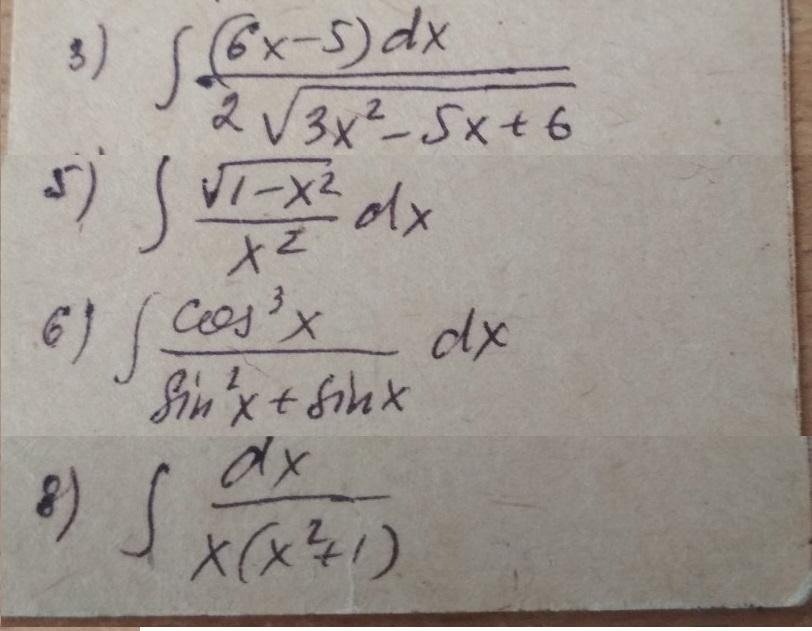 3) ∫ (6x-5)dx / 2√(3x²-5x+6)
5) ∫ √(1-x²) / x² dx
6) ∫ cos³x / (sin²x + sinx) dx
8) ∫ dx / x(x²+1)